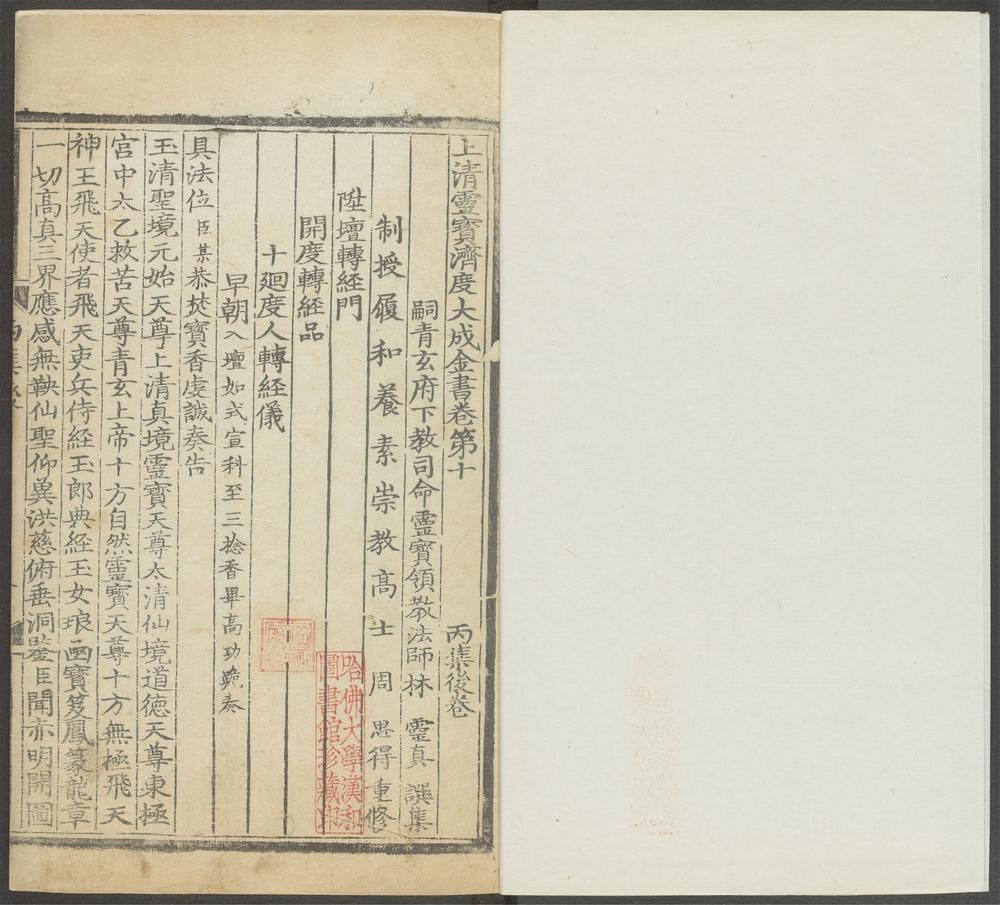 上清靈寶濟度大成金書卷第十　丙集後卷
嗣青玄府下教司命靈寶領教法師林　靈真　譔集
制授履和養素崇教高士　周　思得重修
陞壇轉經門
開度轉經品
十廻度人轉經儀
早朝入壇如式宣科至三捻香畢高功跪奏
具法位臣某恭焚寶香虔誠奏告
玉清聖境元始天尊上清真境靈寶天尊太清仙境道德天尊東極
宮中太乙救苦天尊青玄上帝十方自然靈寶天尊十方無極飛天
神王飛天使者飛天吏兵侍經玉郎典經玉女琅函寶笈鳳篆龍章
一切高真三界應感無鞅仙聖仰兾洪慈俯垂洞鑒臣聞赤明開圖
哈佛大學漢和
圖書館珍藏印